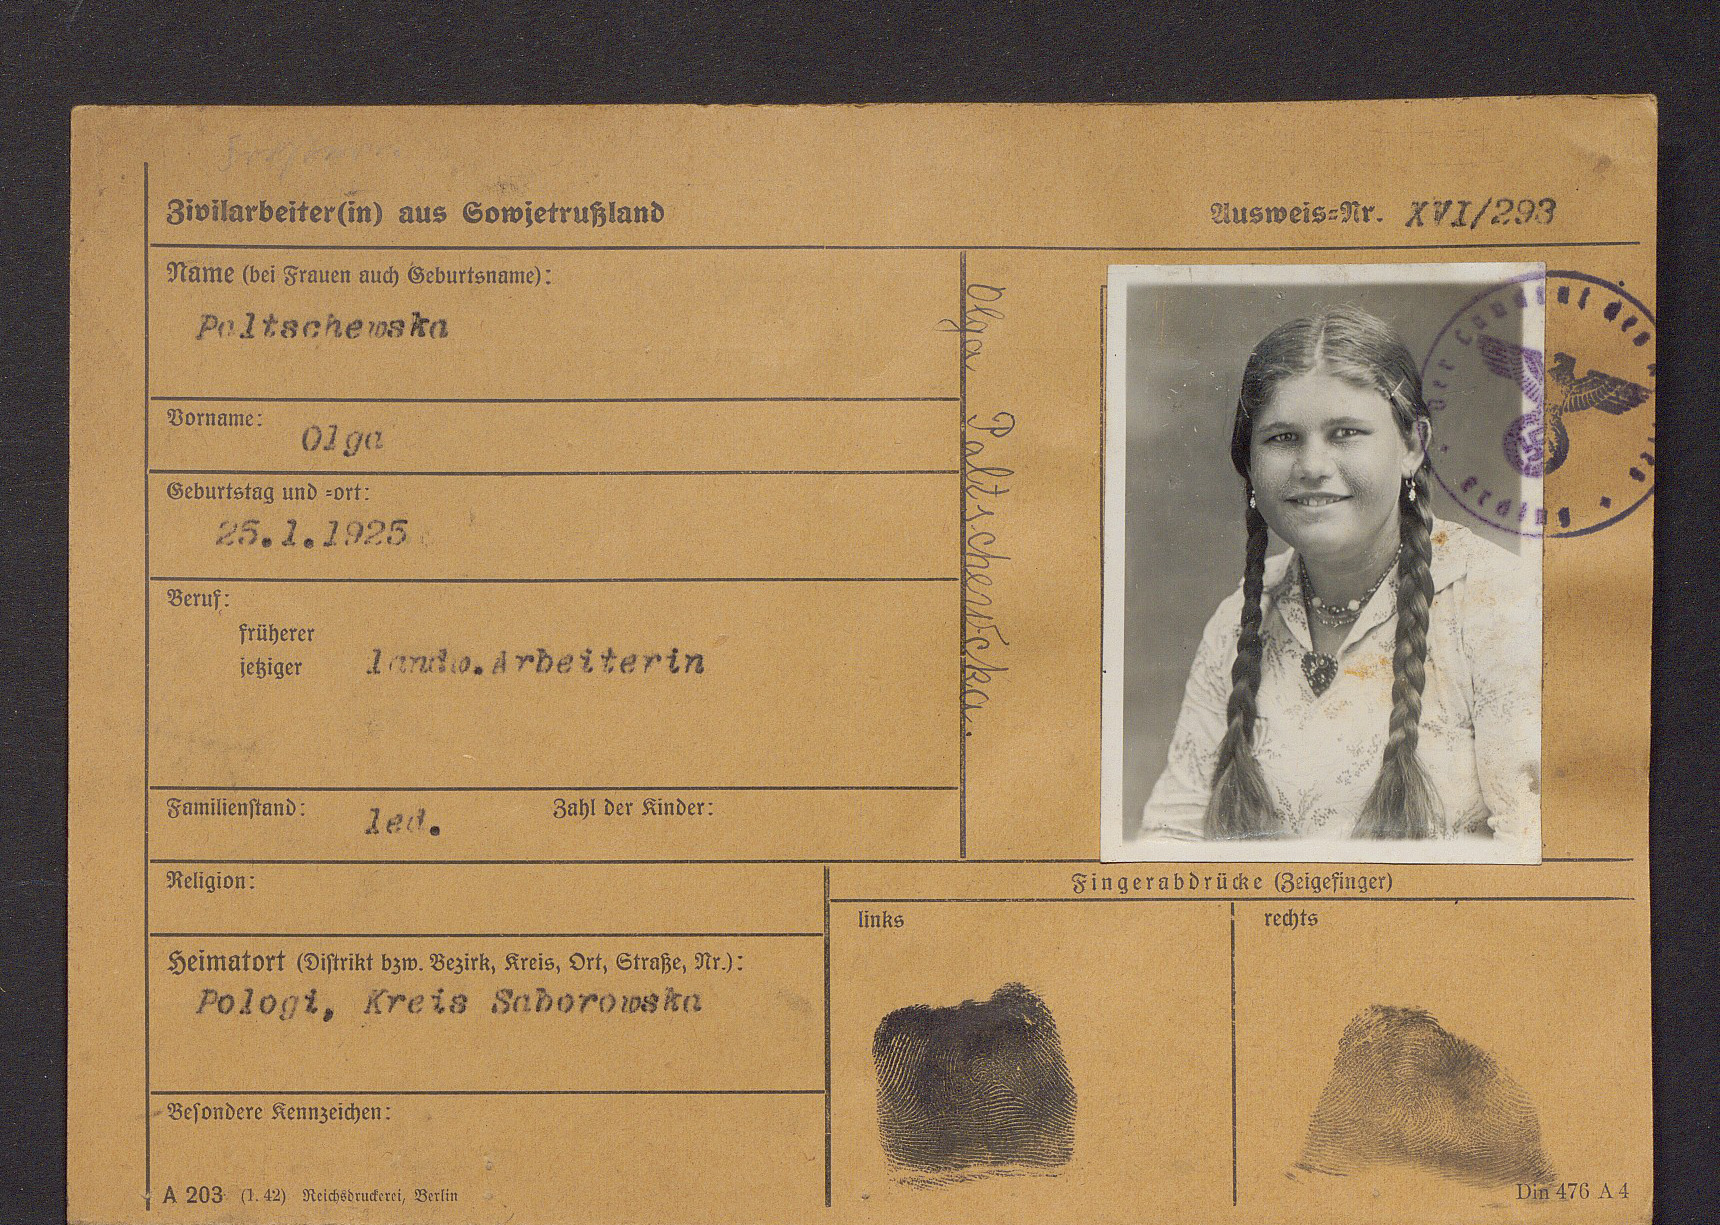 Zivilarbeiter(in) aus Sowjetrußland
Ausweis=Nr. XVI/293
Name (bei Frauen auch Geburtsname):
Paltschewska
Vorname: Olga
Geburtstag und =ort:
25.1.1925
Beruf:
früherer
jetziger landw.Arbeiterin
Familienstand: led. Zahl der Kinder:
Olga Paltschewska.
der Landrat des
Erding
Religion:
Heimatort (Distrikt bzw. Bezirk, Kreis, Ort, Straße, Nr.):
Pologi, Kreis Saborowska
Besondere Kennzeichen:
Fingerabdrücke (Zeigefinger)
links rechts
A 203 (1. 42) Reichsdruckerei, Berlin
Din 476 A 4